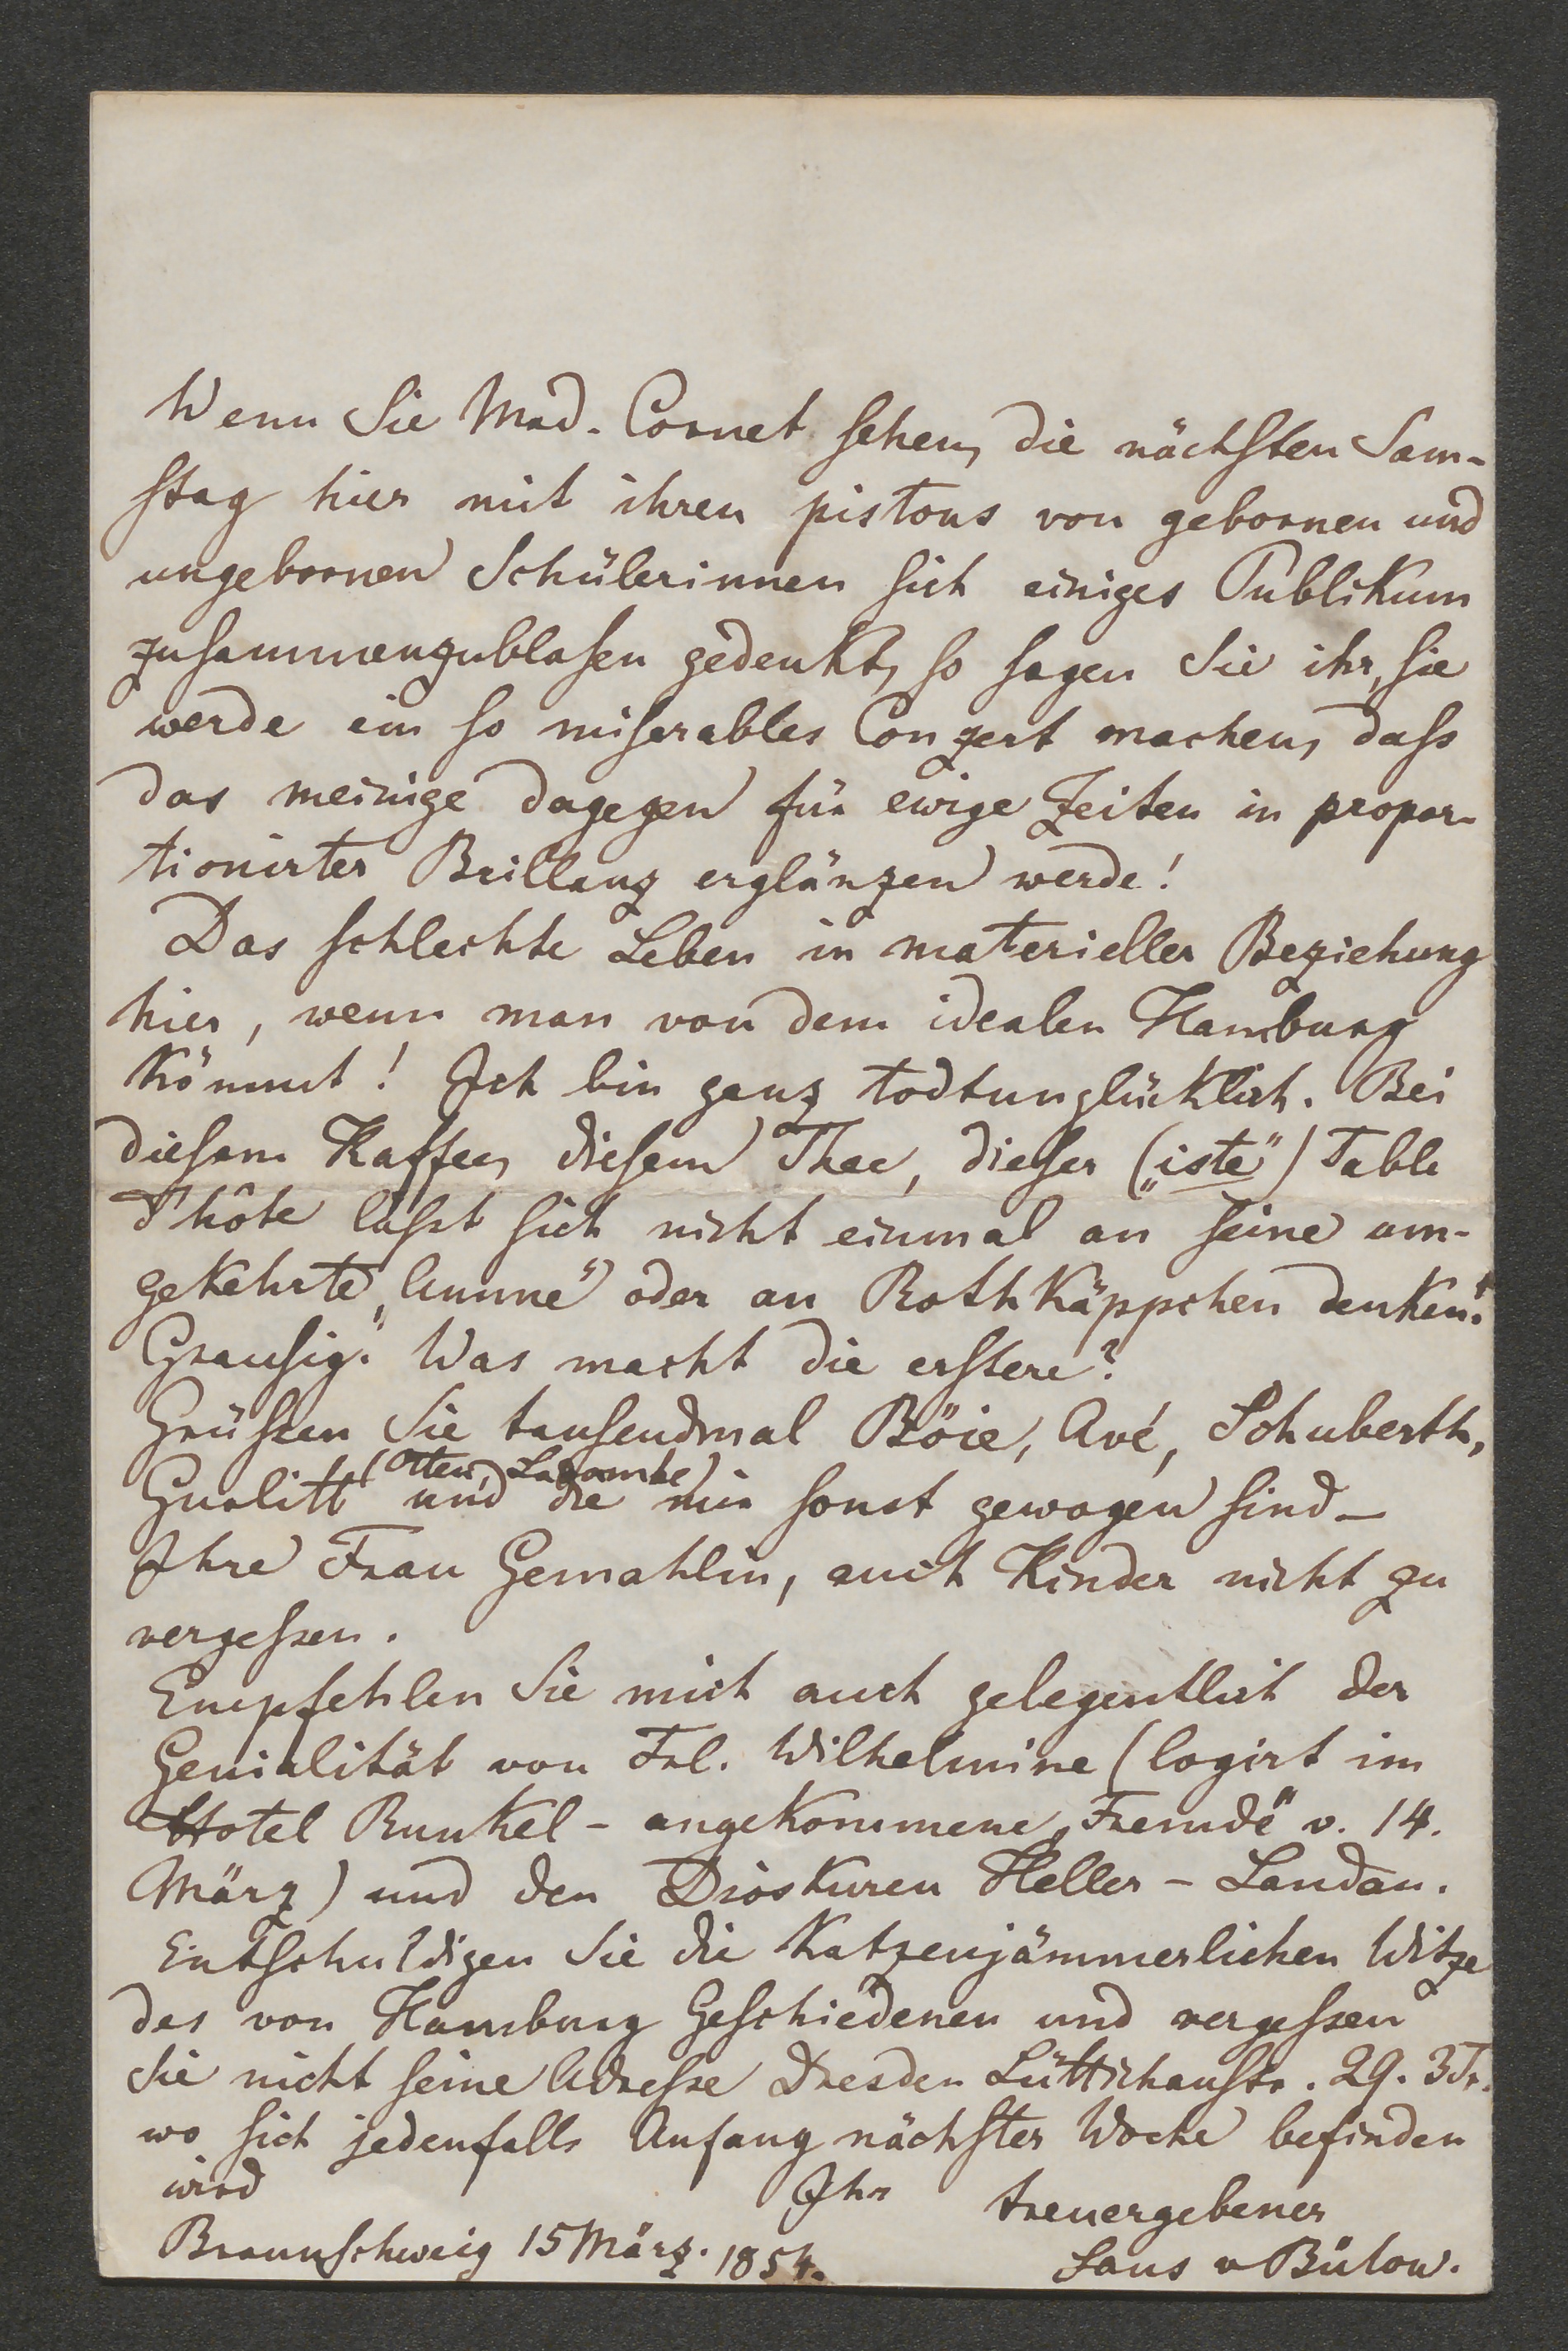 Wenn Sie Mad. Cornet sehen, die nächsten Sam-
stag hier mit ihren pistons von gebornen und
ungebornen Schülerinnen sich einiges Publikum
zusammenzublasen gedenkt, so sagen Sie ihr, sie
werde ein so miserables Conzert machen, dass
das meinige dagegen für ewige Zeiten in propor-
tionirter Brillanz erglänzen werde!
Das schlechte Leben in materieller Beziehung
hier, wenn man von dem idealen Hamburg
kömmt! Ich bin ganz todtunglücklich. Bei
diesem Kaffee, diesem Thee, dieser („iste“) Table
d'hôte lässt sich nicht einmal an seine um-
gekehrte „Amme“ oder an Rothkäppchen denken.“
Grausig. Was macht die erstere?
Grüssen Sie tausendmal Böie, Avé, Schuberth,
(Otten, Lacombe)
Gurlitt und die mir sonst gewogen sind —
Ihre Frau Gemahlin, auch Kinder nicht zu
vergessen.
Empfehlen Sie mich auch gelegentlich der
Genialität von Frl. Wilhelmine (logirt im
Hotel Runkel - angekommene „Fremde“ v. 14.
März) und den Dioskuren Heller - Landau.
Entschuldigen Sie die Katzenjämmerlichen Witze
des von Hamburg Geschiedenen und vergessen
Sie nicht seine Adresse Dresden Lüttichaustr. 29. 3 Tr.
wo sich jedenfalls Anfang nächster Woche befinden
wird
Ihr treuergebener
Hans v Bülow.
Braunschweig 15 März. 1854.